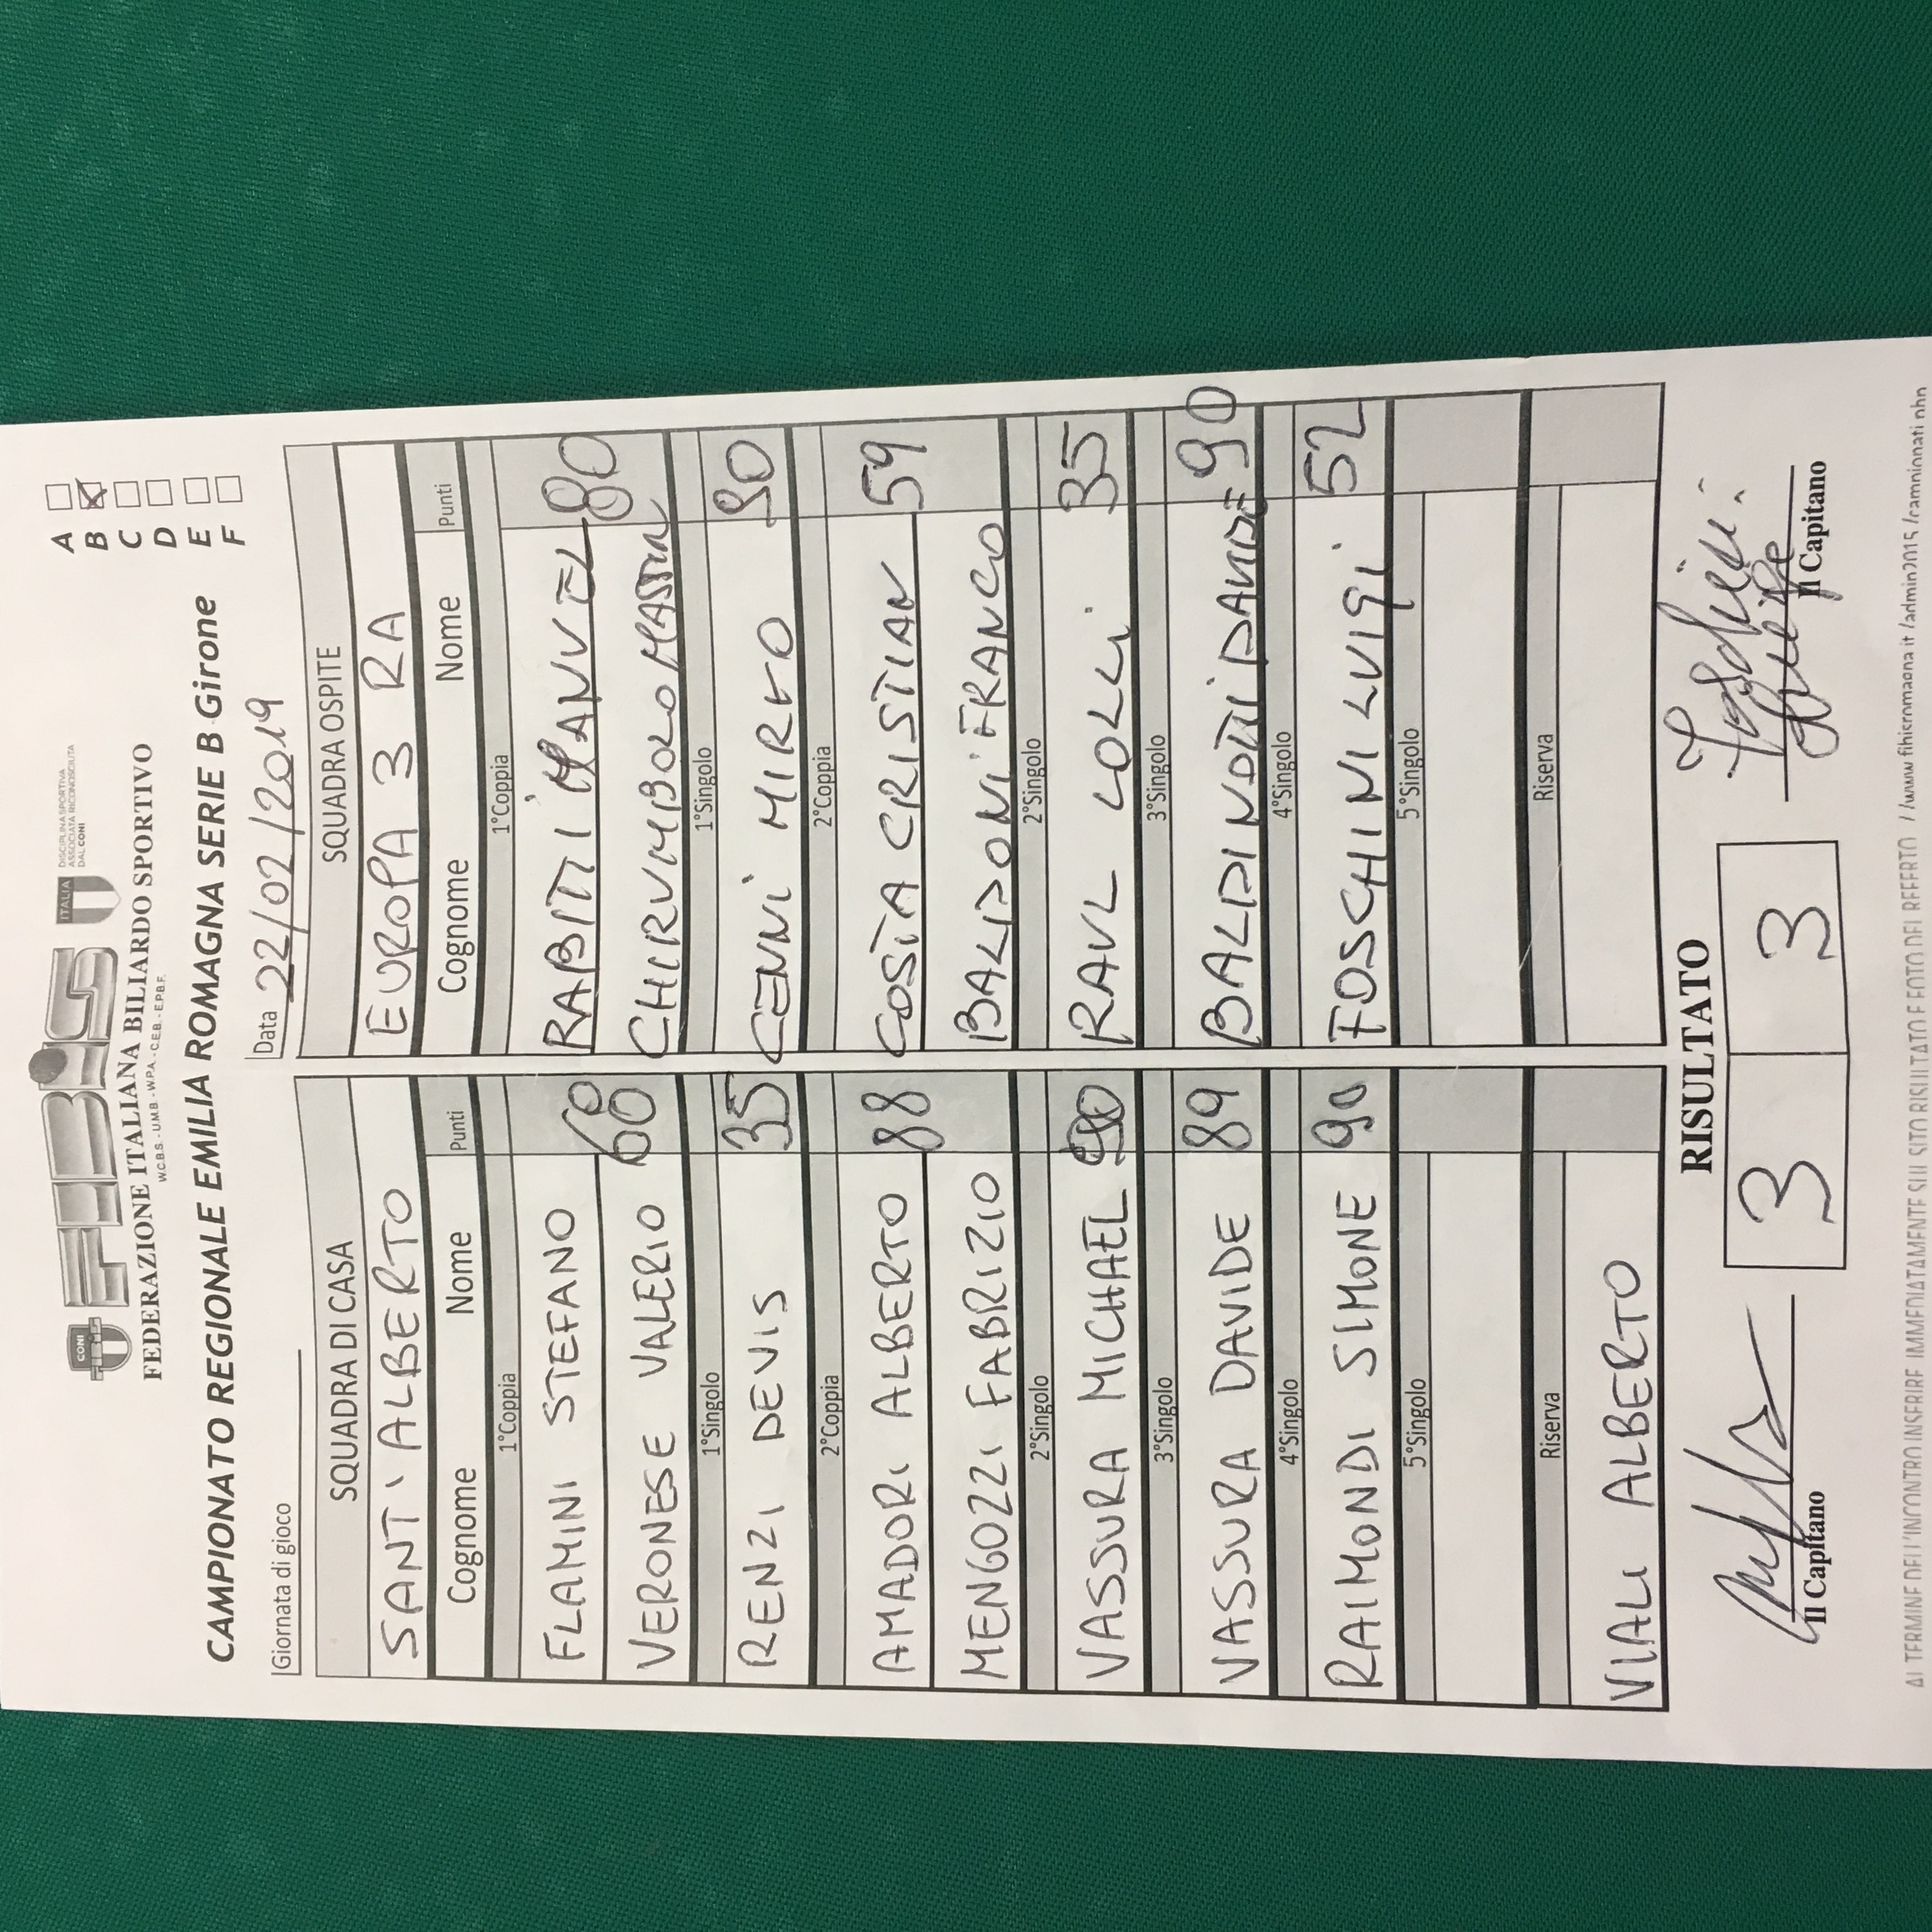 CONI
FIBIS
ITALIA
DISCIPLINA SPORTIVA
ASSOCIATA RICONOSCIUTA
DAL CONI
FEDERAZIONE ITALIANA BILIARDO SPORTIVO
W.C.B.S. - U.M.B. - W.P.A. - C.E.B. - E.P.B.F.
CAMPIONATO REGIONALE EMILIA ROMAGNA SERIE B Girone
A
B
C
D
E
F
Giornata di gioco
Data 22/02/2019
SQUADRA DI CASA SQUADRA OSPITE
SANT'ALBERTO EUROPA 3 RA
Cognome Nome Punti Cognome Nome Punti
1°Coppia 1°Coppia
FLAMINI STEFANO 60 RABITTI MANUEL 80
VERONESE VALERIO 60 CHIRUMBOLO
1°Singolo 1°Singolo
RENZI DEVIS 35 CENNI MIRKO 90
2°Coppia 2°Coppia
AMADORI ALBERTO 88 COSTA CRISTIAN 59
MENGOZZI FABRIZIO BALDONI FRANCO
2°Singolo 2°Singolo
VASSURA MICHAEL 90 RAUL LOLLI 35
3°Singolo 3°Singolo
VASSURA DAVIDE 89 BALDINOTTI DAVIDE 90
4°Singolo 4°Singolo
RAIMONDI SIMONE 90 FOSCHINI LUIGI 52
5°Singolo 5°Singolo
Riserva Riserva
VIALI ALBERTO
RISULTATO
3 3
Il Capitano Foschini Il Capitano
AL TERMINE DELL'INCONTRO INSERIRE IMMEDIATAMENTE SUL SITO RISULTATO E FOTO DEL REFERTO